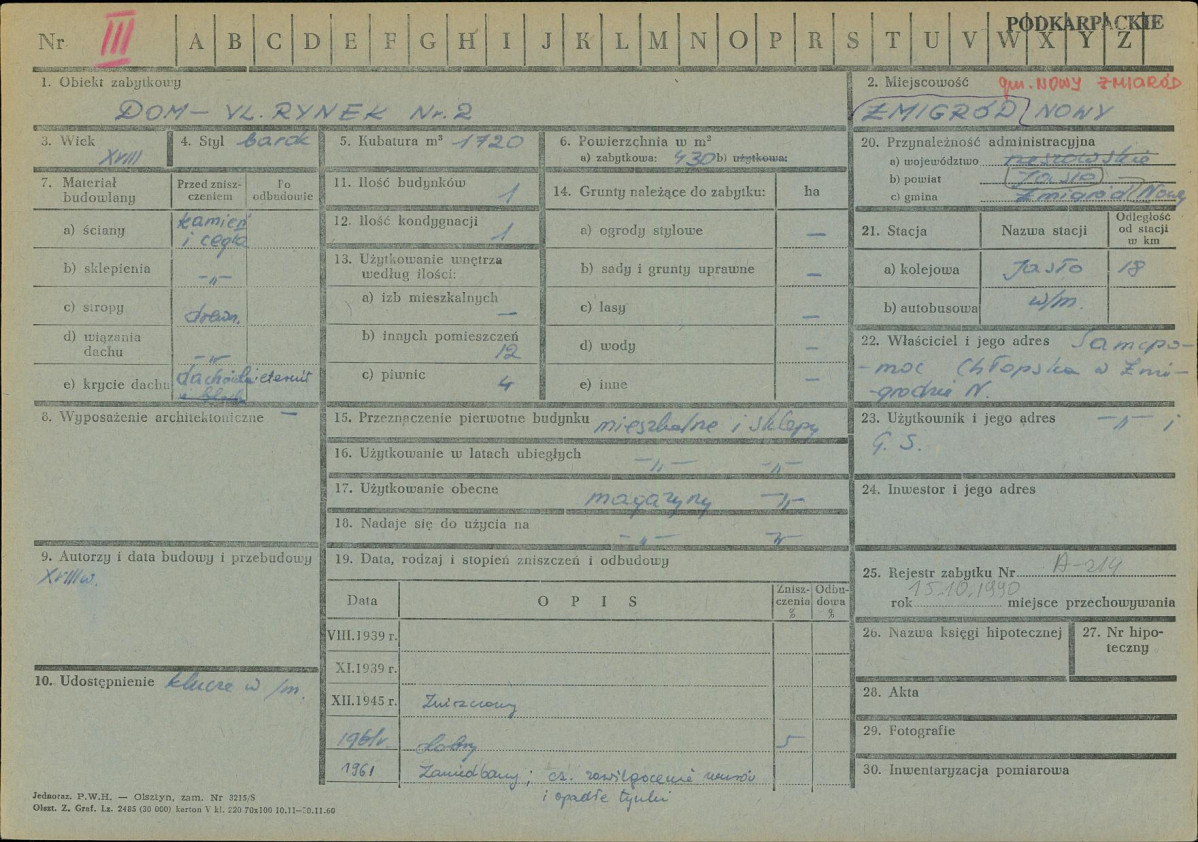 PODKARPACKIE
Nr III A B C D E F G H I J K L M N O P R S T U V W X Y Z
1. Obiekt zabytkowy
DOM – UL. RYNEK Nr. 2
2. Miejscowość gm. NOWY ŻMIGRÓD
ŻMIGRÓD NOWY
3. Wiek
XVIII
4. Styl barok
5. Kubatura m³ 1720
6. Powierzchnia w m²
a) zabytkowa: 430 b) użytkowa:
7. Materiał budowlany
Przed zniszczeniem
Po odbudowie
a) ściany kamień i cegła
b) sklepienia –„–
c) stropy drewn.
d) wiązania dachu –„–
e) krycie dachu dachówka eternit
8. Wyposażenie architektoniczne –
9. Autorzy i data budowy i przebudowy
XVIII w.
10. Udostępnienie klucze w /m.
11. Ilość budynków 1
12. Ilość kondygnacji 1
13. Użytkowanie wnętrza według ilości:
a) izb mieszkalnych –
b) innych pomieszczeń 12
c) piwnic 4
14. Grunty należące do zabytku: ha
a) ogrody stylowe –
b) sady i grunty uprawne –
c) lasy –
d) wody –
e) inne –
15. Przeznaczenie pierwotne budynku mieszkalne i sklepy
16. Użytkowanie w latach ubiegłych –„– –„–
17. Użytkowanie obecne magazyny –„–
18. Nadaje się do użycia na –„– –„–
19. Data, rodzaj i stopień zniszczeń i odbudowy
Data OPIS Zniszczenia % Odbudowa %
VIII.1939 r.
XI.1939 r.
XII.1945 r. Zniszczony
1961r. dobry 5
1961 Zaniedbany; cz. zawilgocenie murów
i opadłe tynki
20. Przynależność administracyjna
a) województwo rzeszowskie
b) powiat Jasło
c) gmina Żmigród Nowy
21. Stacja Nazwa stacji Odległość od stacji w km
a) kolejowa Jasło 18
b) autobusowa w/m.
22. Właściciel i jego adres Samopo-
-moc Chłopska w Żmi-
-grodzie N.
23. Użytkownik i jego adres –„– i
G. S.
24. Inwestor i jego adres
25. Rejestr zabytku Nr A-214
15.10.1990
rok miejsce przechowywania
26. Nazwa księgi hipotecznej
27. Nr hipoteczny
28. Akta
29. Fotografie
30. Inwentaryzacja pomiarowa
Jednoraz. P.W.H. — Olsztyn, zam. Nr 3215/S
Olszt. Z. Graf. Lz. 2485 (30 000) karton V kl. 220 70x100 10.11—20.11.60